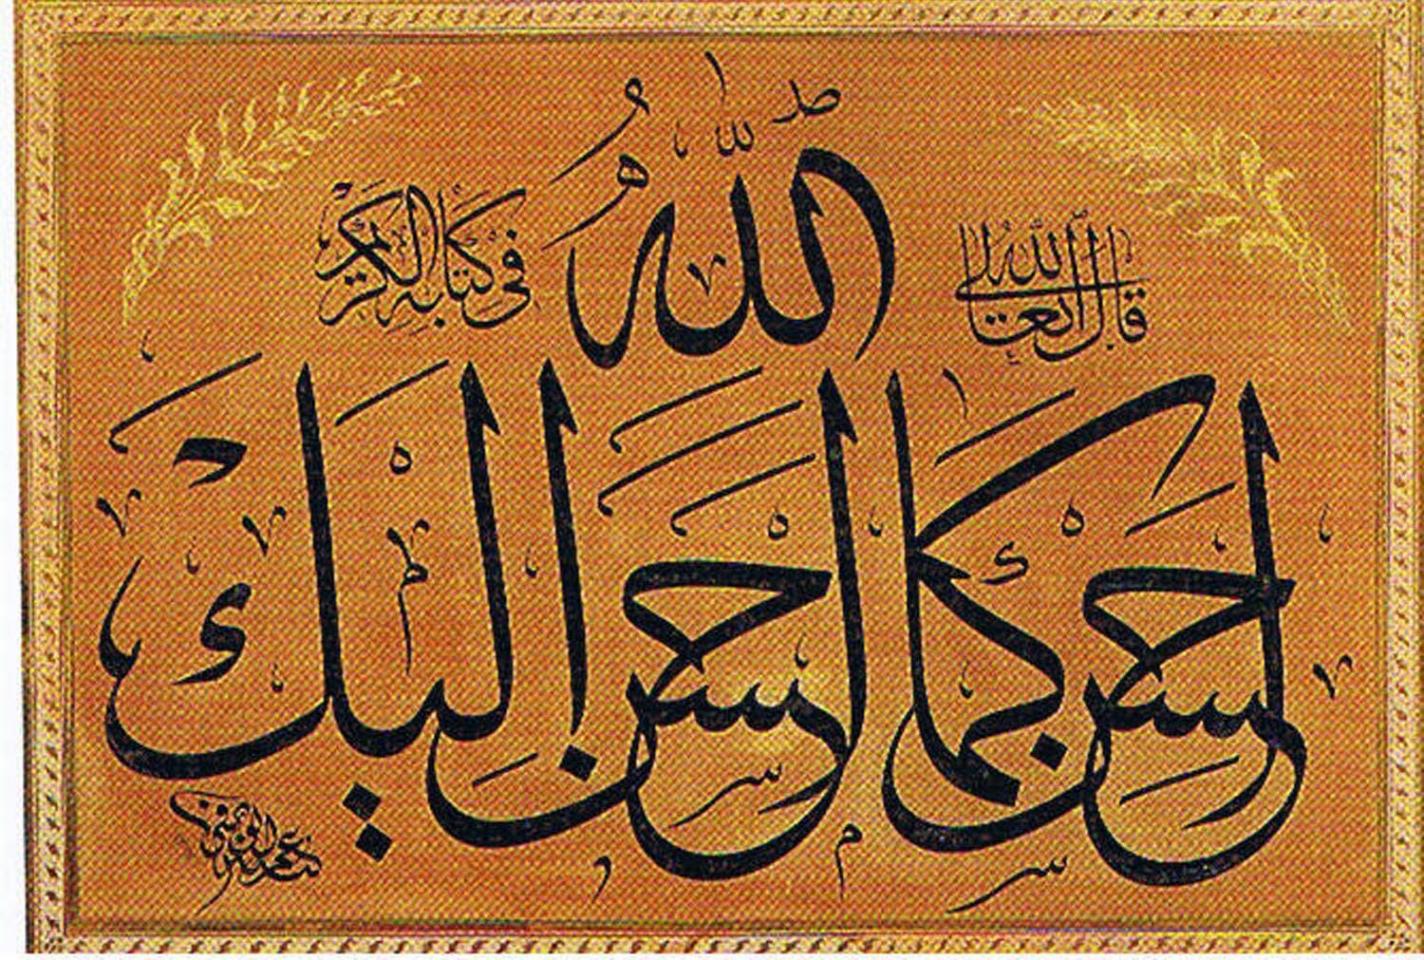 قال الله تعالى
في كتابه الكريم
احسن كما احسن الله اليك